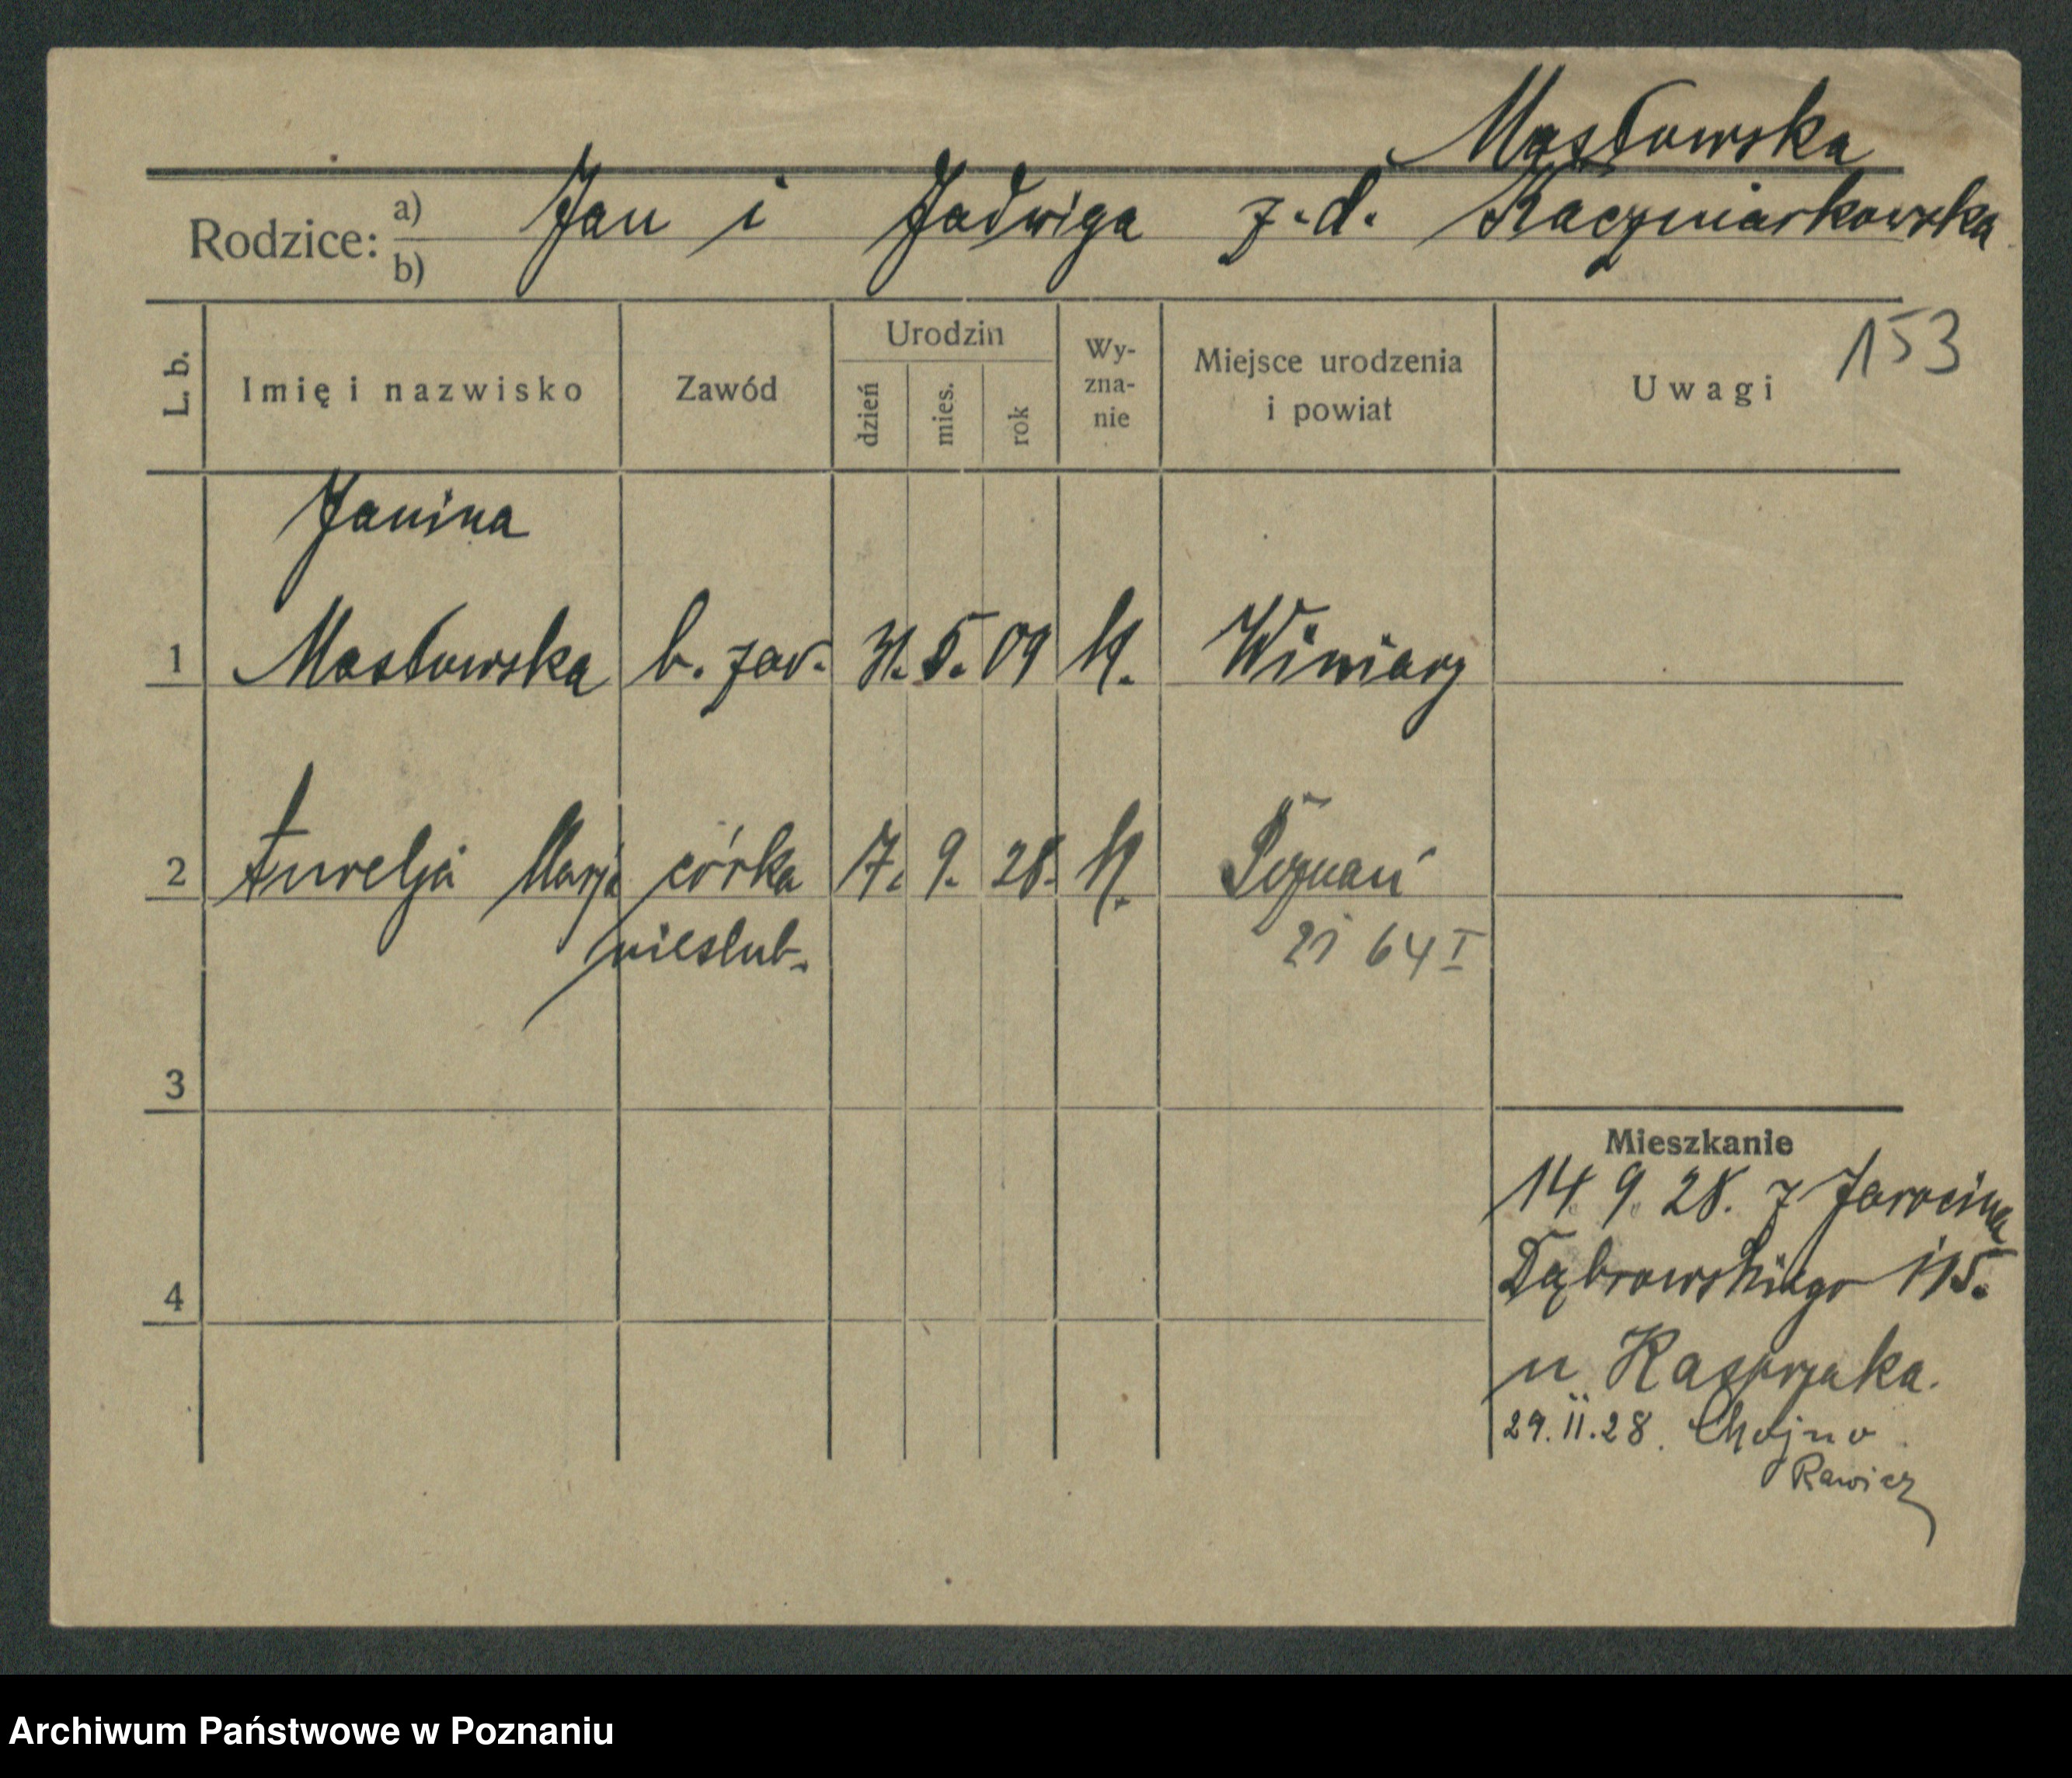 Masłowska
Rodzice: a) b) Jan i Jadwiga z. d. Kaczmarkowska
153
L. b. Imię i nazwisko Zawód Urodzin dzień mies. rok Wy-zna-nie Miejsce urodzenia i powiat Uwagi
Janina
1 Masłowska b. zaw. 31. 5. 09 k. Winiary
2 Aurelja Marja córka 17. 9. 28. k. Poznań
nieslub. 64 I
3
Mieszkanie
14. 9. 28. z Jarocina
Dąbrowskiego 115.
4
u Kasprzaka.
29. II. 28. Chojno
Rawicz
Archiwum Państwowe w Poznaniu